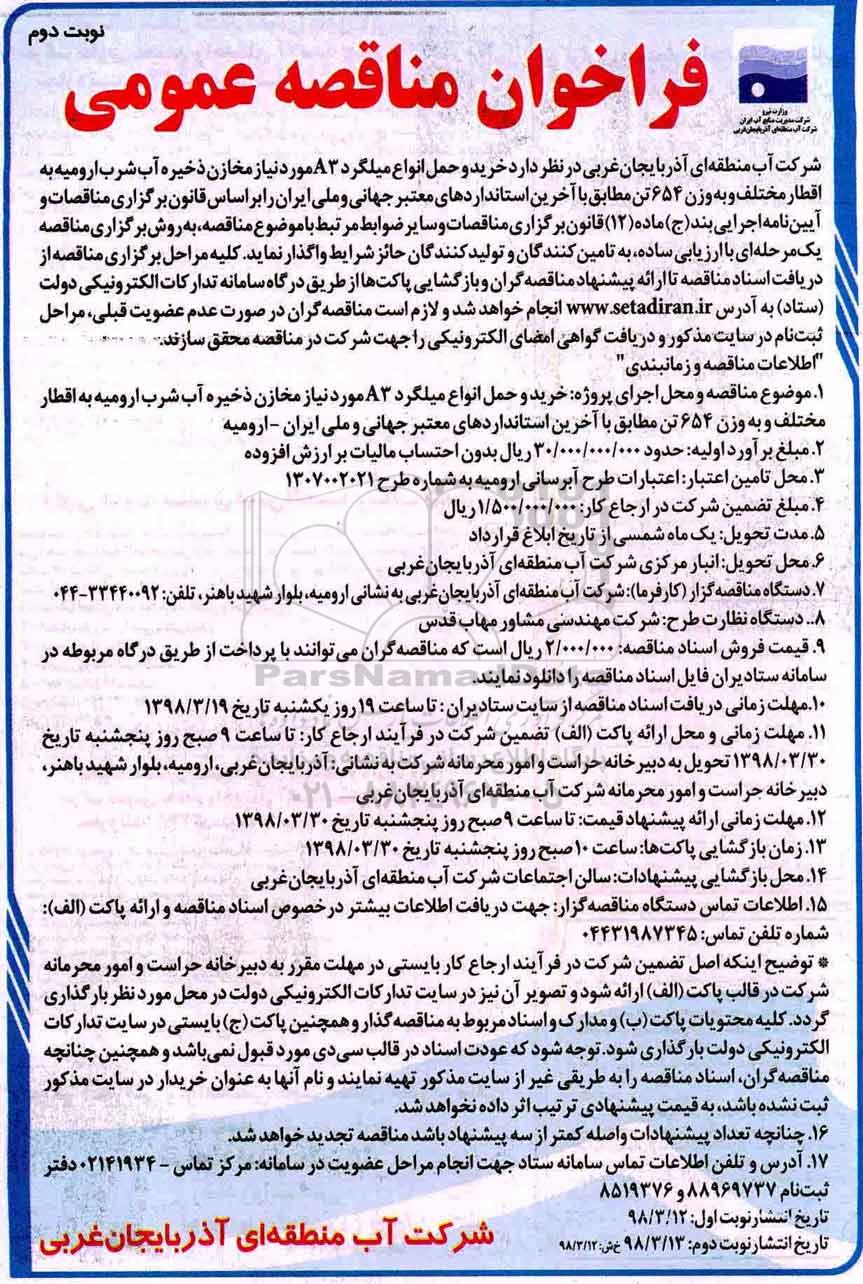 نوبت دوم
فراخوان مناقصه عمومی
وزارت نیرو
شرکت مدیریت منابع آب ایران
شرکت آب منطقه‌ای آذربایجان‌غربی
شرکت آب منطقه‌ای آذربایجان‌غربی در نظر دارد خرید و حمل انواع میلگرد A۳ مورد نیاز مخازن ذخیره آب شرب ارومیه به
اقطار مختلف و به وزن ۶۵۴ تن مطابق با آخرین استانداردهای معتبر جهانی و ملی ایران را بر اساس قانون برگزاری مناقصات و
آیین‌نامه اجرایی بند (ج) ماده (۱۲) قانون برگزاری مناقصات و سایر ضوابط مرتبط با موضوع مناقصه، به روش برگزاری مناقصه
یک مرحله‌ای با ارزیابی ساده، به تامین کنندگان و تولید کنندگان حائز شرایط واگذار نماید. کلیه مراحل برگزاری مناقصه از
دریافت اسناد مناقصه تا ارائه پیشنهاد مناقصه‌گران و بازگشایی پاکت‌ها از طریق درگاه سامانه تدارکات الکترونیکی دولت
(ستاد) به آدرس www.setadiran.ir انجام خواهد شد و لازم است مناقصه‌گران در صورت عدم عضویت قبلی، مراحل
ثبت‌نام در سایت مذکور و دریافت گواهی امضای الکترونیکی را جهت شرکت در مناقصه محقق سازند.
"اطلاعات مناقصه و زمانبندی"
۱. موضوع مناقصه و محل اجرای پروژه: خرید و حمل انواع میلگرد A۳ مورد نیاز مخازن ذخیره آب شرب ارومیه به اقطار
مختلف و به وزن ۶۵۴ تن مطابق با آخرین استانداردهای معتبر جهانی و ملی ایران - ارومیه
۲. مبلغ برآورد اولیه: حدود ۳۰/۰۰۰/۰۰۰/۰۰۰ ریال بدون احتساب مالیات بر ارزش افزوده
۳. محل تامین اعتبار: اعتبارات طرح آبرسانی ارومیه به شماره طرح ۱۳۰۷۰۰۲۰۲۱
۴. مبلغ تضمین شرکت در ارجاع کار: ۱/۵۰۰/۰۰۰/۰۰۰ ریال
۵. مدت تحویل: یک ماه شمسی از تاریخ ابلاغ قرارداد
۶. محل تحویل: انبار مرکزی شرکت آب منطقه‌ای آذربایجان‌غربی
۷. دستگاه مناقصه‌گزار (کارفرما): شرکت آب منطقه‌ای آذربایجان‌غربی به نشانی ارومیه، بلوار شهید باهنر، تلفن: ۳۳۴۴۰۰۹۲-۰۴۴
۸.. دستگاه نظارت طرح: شرکت مهندسی مشاور مهاب قدس
۹. قیمت فروش اسناد مناقصه: ۲/۰۰۰/۰۰۰ ریال است که مناقصه‌گران می‌توانند با پرداخت از طریق درگاه مربوطه در
سامانه ستاد ایران فایل اسناد مناقصه را دانلود نمایند.
۱۰. مهلت زمانی دریافت اسناد مناقصه از سایت ستاد ایران : تا ساعت ۱۹ روز یکشنبه تاریخ ۱۳۹۸/۳/۱۹
۱۱. مهلت زمانی و محل ارائه پاکت (الف) تضمین شرکت در فرآیند ارجاع کار: تا ساعت ۹ صبح روز پنجشنبه تاریخ
۱۳۹۸/۰۳/۳۰ تحویل به دبیرخانه حراست و امور محرمانه شرکت به نشانی: آذربایجان‌غربی، ارومیه، بلوار شهید باهنر،
دبیرخانه حراست و امور محرمانه شرکت آب منطقه‌ای آذربایجان‌غربی
۱۲. مهلت زمانی ارائه پیشنهاد قیمت: تا ساعت ۹ صبح روز پنجشنبه تاریخ ۱۳۹۸/۰۳/۳۰
۱۳. زمان بازگشایی پاکت‌ها: ساعت ۱۰ صبح روز پنجشنبه تاریخ ۱۳۹۸/۰۳/۳۰
۱۴. محل بازگشایی پیشنهادات: سالن اجتماعات شرکت آب منطقه‌ای آذربایجان‌غربی
۱۵. اطلاعات تماس دستگاه مناقصه‌گزار: جهت دریافت اطلاعات بیشتر در خصوص اسناد مناقصه و ارائه پاکت (الف):
شماره تلفن تماس: ۰۴۴۳۱۹۸۷۳۴۵
* توضیح اینکه اصل تضمین شرکت در فرآیند ارجاع کار بایستی در مهلت مقرر به دبیرخانه حراست و امور محرمانه
شرکت در قالب پاکت (الف) ارائه شود و تصویر آن نیز در سایت تدارکات الکترونیکی دولت در محل مورد نظر بارگذاری
گردد. کلیه محتویات پاکت (ب) و مدارک و اسناد مربوط به مناقصه‌گذار و همچنین پاکت (ج) بایستی در سایت تدارکات
الکترونیکی دولت بارگذاری شود. توجه شود که عودت اسناد در قالب سی‌دی مورد قبول نمی‌باشد و همچنین چنانچه
مناقصه‌گران، اسناد مناقصه را به طریقی غیر از سایت مذکور تهیه نمایند و نام آنها به عنوان خریدار در سایت مذکور
ثبت نشده باشد، به قیمت پیشنهادی ترتیب اثر داده نخواهد شد.
۱۶. چنانچه تعداد پیشنهادات واصله کمتر از سه پیشنهاد باشد مناقصه تجدید خواهد شد.
۱۷. آدرس و تلفن اطلاعات تماس سامانه ستاد جهت انجام مراحل عضویت در سامانه: مرکز تماس - ۰۲۱۴۱۹۳۴ دفتر
ثبت‌نام ۸۸۹۶۹۷۳۷ و ۸۵۱۹۳۷۶
تاریخ انتشار نوبت اول: ۹۸/۳/۱۲
تاریخ انتشار نوبت دوم: ۹۸/۳/۱۳ خ‌ش: ۹۸/۳/۱۲
شرکت آب منطقه‌ای آذربایجان‌غربی
ParsNamadData